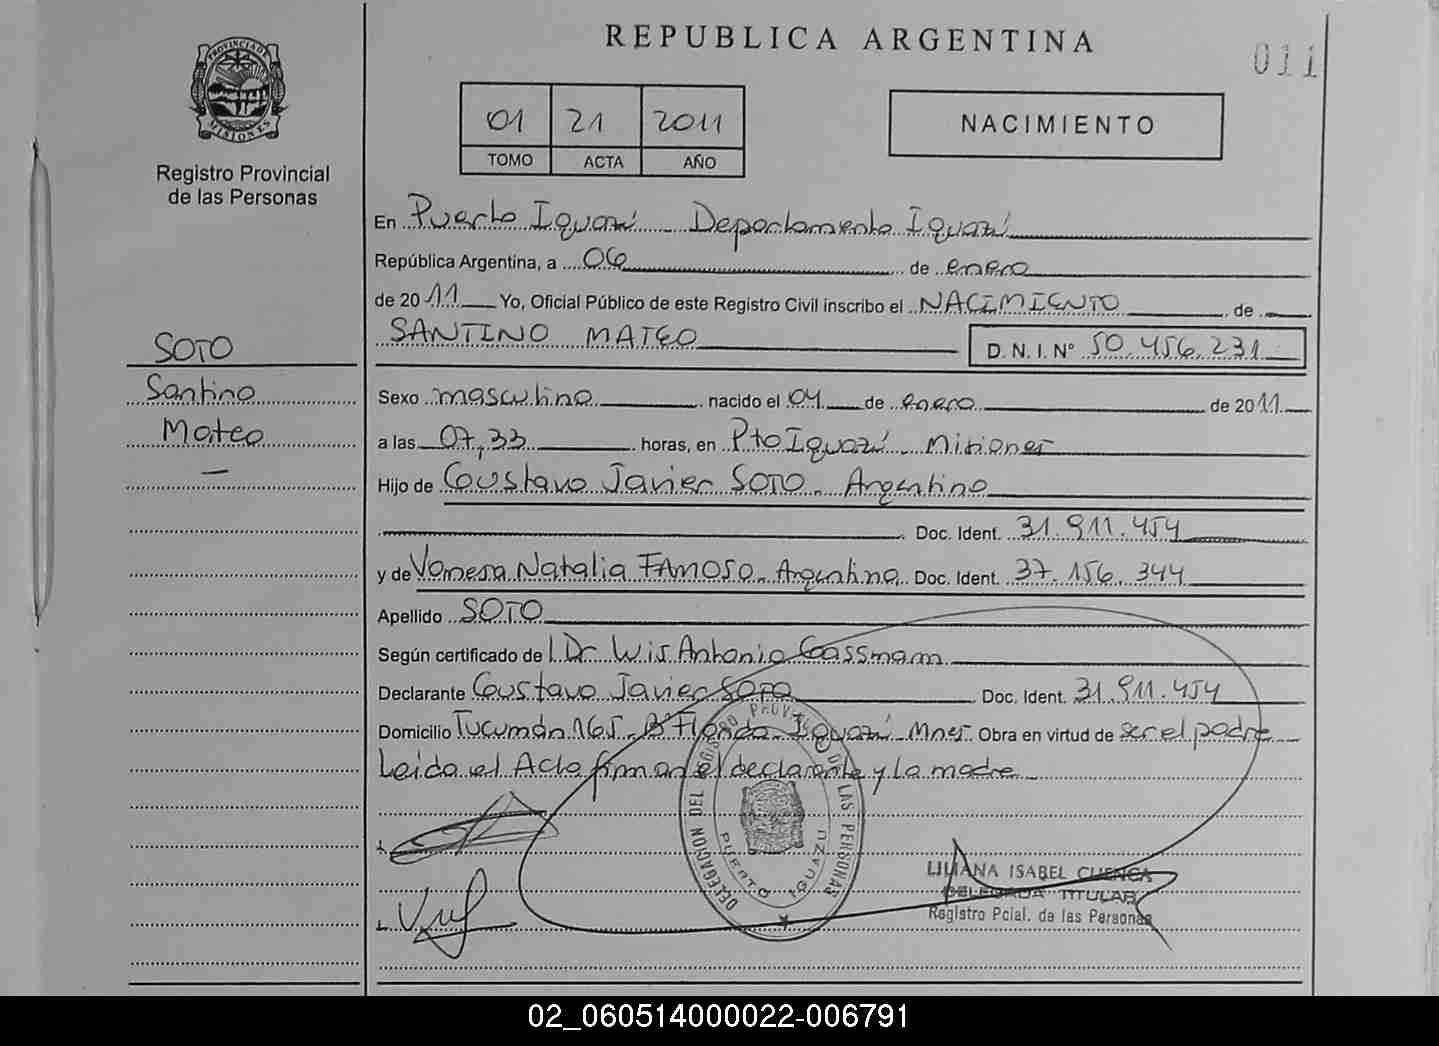 REPUBLICA ARGENTINA
011
PROVINCIA DE
MISIONES
Registro Provincial
de las Personas
01 21 2011
TOMO ACTA AÑO
NACIMIENTO
En Puerto Iguazú - Departamento Iguazú
República Argentina, a 06 de enero
de 2011 Yo, Oficial Público de este Registro Civil inscribo el NACIMIENTO de
SANTINO MATEO D. N. I. Nº 50.456.231
SOTO
Santino
Mateo
Sexo masculino nacido el 04 de enero de 2011
a las 07,33 horas, en Pto Iguazú - Misiones
Hijo de Gustavo Javier SOTO - Argentino
Doc. Ident. 31.911.454
y de Vanesa Natalia FAMOSO - Argentina Doc. Ident. 37.156.344
Apellido SOTO
Según certificado de Dr Luis Antonio Gassmann
Declarante Gustavo Javier SOTO Doc. Ident. 31.911.454
Domicilio Tucumán 165 - Bº Florida - Iguazú - Mnes. Obra en virtud de ser el padre
Leida el Acta firman el declarante y la madre
DELEGACION DEL REGISTRO PROVINCIAL DE LAS PERSONAS
PUERTO IGUAZU
LILIANA ISABEL CUENCA
DELEGADA TITULAR
Registro Pcial. de las Personas
02_060514000022-006791